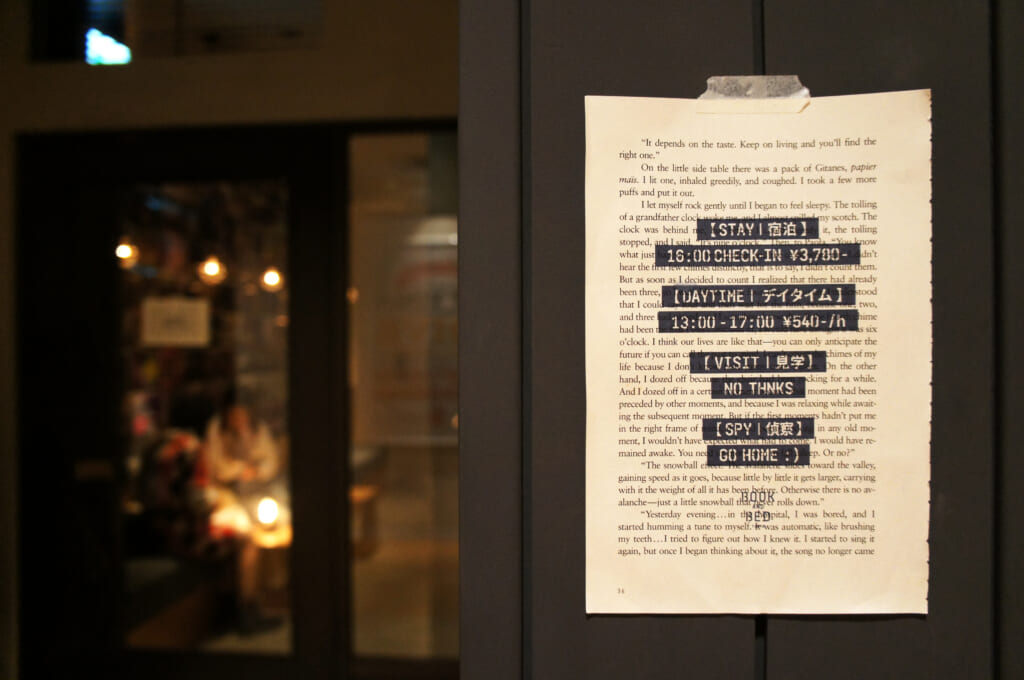 "It depends on the taste. Keep on living and you'll find the
right one."
On the little side table there was a pack of Gitanes, papier
mais. I lit one, inhaled greedily, and coughed. I took a few more
puffs and put it out.
I let myself rock gently until I began to feel sleepy. The tolling
of a grandfather clock woke me, and I almost spilled my scotch. The
clock was behind it, the tolling
【STAY | 宿泊】
stopped, and I said, "It's nine o'clock." Then, to Paola, "You know
what just
16:00 CHECK-IN ¥3,780-
hear the first few chimes distinctly, that is to say, I didn't count them.
But as soon as I decided to count I realized that there had already
been three,
【DAYTIME | デイタイム】
that I could two,
and three
13:00-17:00 ¥540-/h
had been was six
o'clock. I think our lives are like that—you can only anticipate the
future if you can chimes of my
life because I On the other
【VISIT | 見学】
hand, I dozed off because rocking for a while.
And I dozed off in a moment had been
NO THNKS
preceded by other moments, and because I was relaxing while await-
ing the subsequent moment. But if the first moments hadn't put me
in the right frame of in any old mo-
【SPY | 偵察】
ment, I wouldn't have expected what had to come. I would have re-
mained awake. You need Or no?"
GO HOME :)
"The snowball toward the valley,
gaining speed as it goes, because little by little it gets larger, carrying
with it the weight of all it has been before. Otherwise there is no av-
alanche—just a little snowball that never rolls down."
BOOK
AND
BED
"Yesterday evening…in the hospital, I was bored, and I
started humming a tune to myself. It was automatic, like brushing
my teeth…I tried to figure out how I knew it. I started to sing it
again, but once I began thinking about it, the song no longer came
36